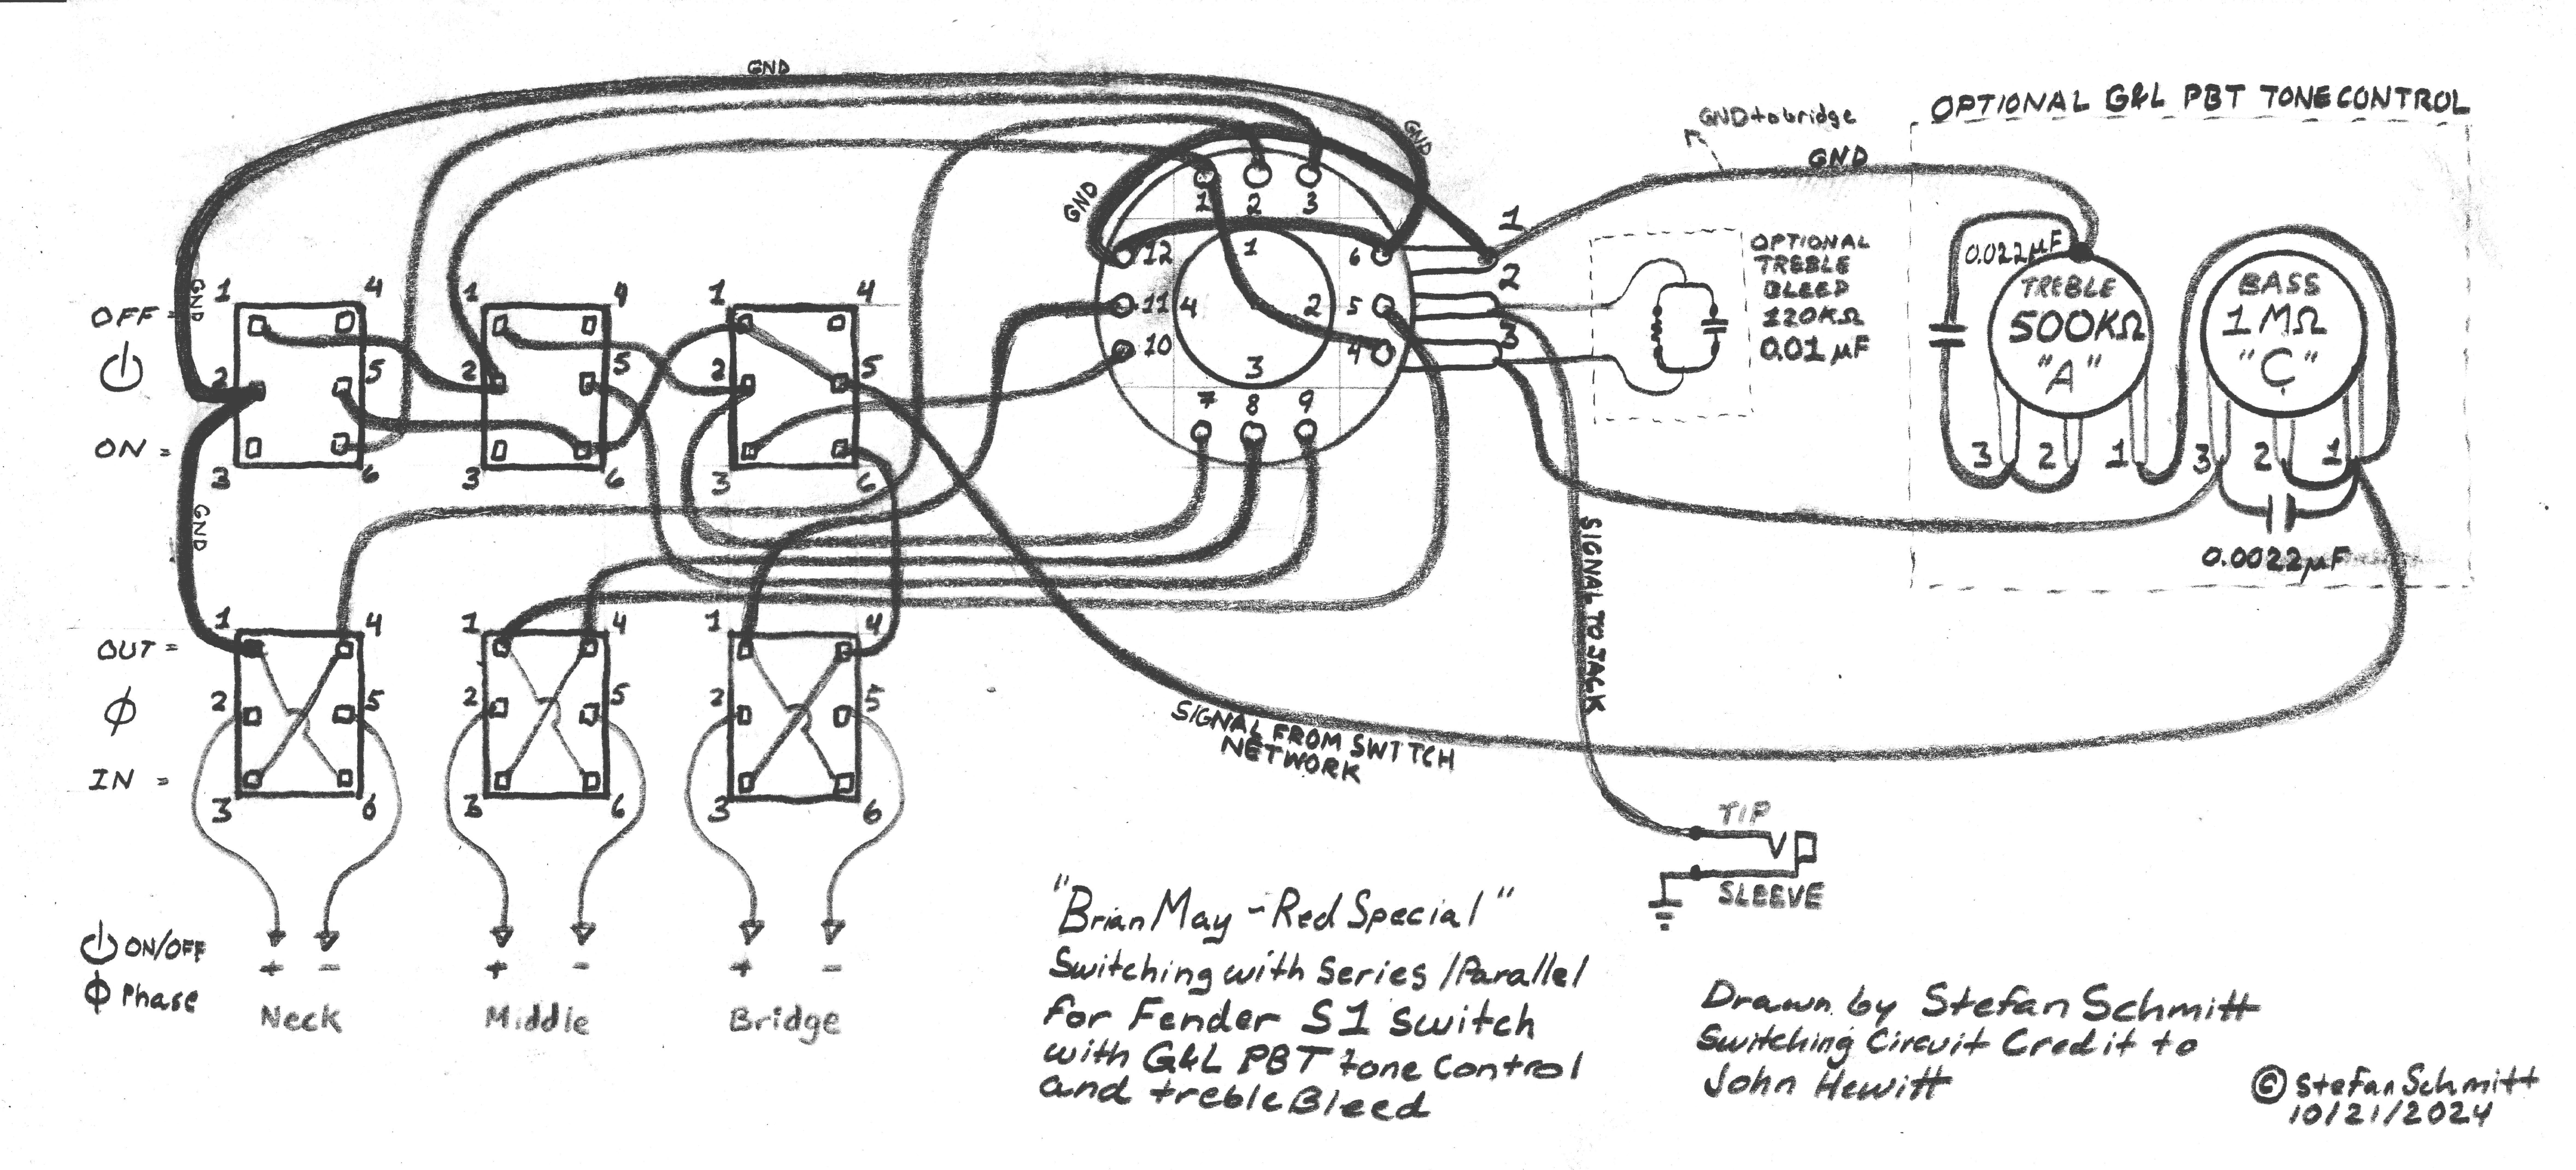 GND
OPTIONAL G&L PBT TONE CONTROL
GND to bridge
GND
GND
GND
1 2 3
12 1 6
11 4 2 5
10 3 4
7 8 9
1
2
3
OPTIONAL
TREBLE
BLEED
120KΩ
0.01 µF
0.022µF
TREBLE
500KΩ
"A"
3 2 1
BASS
1MΩ
"C"
3 2 1
0.0022µF
GND
1 4 1 4 1 4
OFF =
2 5 2 5 2 5
ON =
3 6 3 6 3 6
GND
1 4 1 4 1 4
OUT =
2 5 2 5 2 5
ϕ
IN =
3 6 3 6 3 6
SIGNAL TO JACK
SIGNAL FROM SWITCH
NETWORK
TIP
SLEEVE
ON/OFF
ϕ Phase
+ - + - + -
Neck Middle Bridge
"Brian May - Red Special"
Switching with Series/Parallel
for Fender S1 switch
with G&L PBT tone control
and treble Bleed
Drawn by Stefan Schmitt
Switching Circuit Credit to
John Hewitt
© Stefan Schmitt
10/21/2024